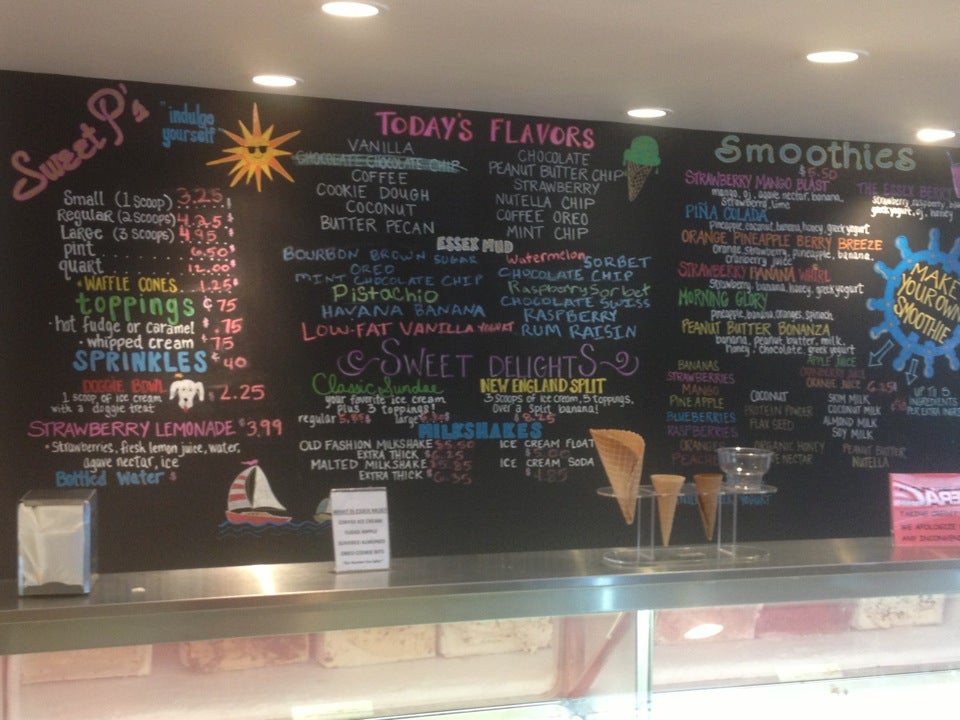 Sweet P's
"indulge
yourself
Small (1 scoop) 3.25
Regular (2 scoops) 4.25
Large (3 scoops) 4.95
pint 6.50
quart 12.00
• WAFFLE CONES 1.25
toppings 75
• hot fudge or caramel .75
• whipped cream 75
SPRINKLES 40
DOGGIE BOWL $2.25
1 scoop of ice cream
with a doggie treat
STRAWBERRY LEMONADE $3.99
• Strawberries, fresh lemon juice, water,
agave nectar, ice
Bottled Water $
TODAY'S FLAVORS
VANILLA
CHOCOLATE CHOCOLATE CHIP
COFFEE
COOKIE DOUGH
COCONUT
BUTTER PECAN
CHOCOLATE
PEANUT BUTTER CHIP
STRAWBERRY
NUTELLA CHIP
COFFEE OREO
MINT CHIP
ESSEX MUD
BOURBON BROWN SUGAR
OREO
MINT CHOCOLATE CHIP
Pistachio
HAVANA BANANA
LOW-FAT VANILLA YOGURT
Watermelon SORBET
CHOCOLATE CHIP
Raspberry Sorbet
CHOCOLATE SWISS
RASPBERRY
RUM RAISIN
SWEET DELIGHTS
Classic Sundae
your favorite ice cream
plus 3 toppings!
regular 5.95 large
NEW ENGLAND SPLIT
3 scoops of ice cream, 3 toppings,
over a split banana!
MILKSHAKES
OLD FASHION MILKSHAKE $5.50
EXTRA THICK $6.25
MALTED MILKSHAKE $5.85
EXTRA THICK $6.35
ICE CREAM FLOAT
$5.00
ICE CREAM SODA
$4.85
Smoothies
$5.50
STRAWBERRY MANGO BLAST
mango, oj, agave nectar, banana,
strawberry, lime
PIÑA COLADA
pineapple, coconut, banana, honey, greek yogurt
ORANGE PINEAPPLE BERRY BREEZE
orange, strawberry, pineapple, banana,
cranberry juice
STRAWBERRY BANANA WHIRL
strawberry, banana, honey, greek yogurt
MORNING GLORY
pineapple, banana, oranges, spinach,
PEANUT BUTTER BONANZA
banana, peanut butter, milk,
honey, chocolate, greek yogurt
THE ESSEX BERRY
strawberry, raspberry,
greek yogurt, oj, honey
MAKE
YOUR OWN
SMOOTHIE
BANANAS
STRAWBERRIES
MANGO
PINEAPPLE
BLUEBERRIES
RASPBERRIES
ORANGES
COCONUT
PROTEIN POWDER
FLAX SEED
ORGANIC HONEY
NECTAR
APPLE JUICE
CRANBERRY JUICE
ORANGE JUICE 6.25
SKIM MILK
COCONUT MILK
ALMOND MILK
SOY MILK
PEANUT BUTTER
NUTELLA
UP TO 5
INGREDIENTS
WHAT IS ESSEX MUD?
COFFEE ICE CREAM
FUDGE RIPPLE
SLIVERED ALMONDS
OREO COOKIE BITS
WE APOLOGIZE
ANY INCONVEN